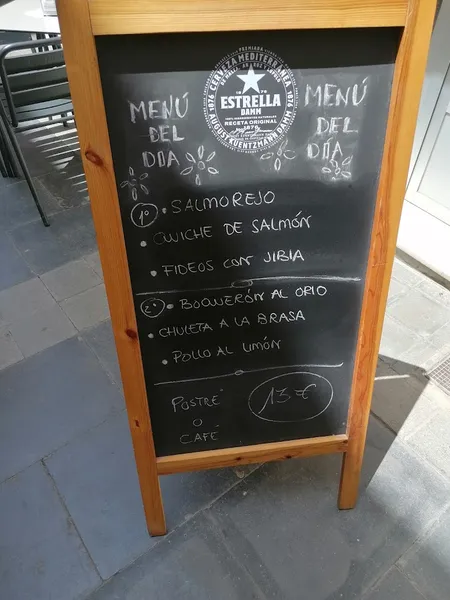 CERVEZA MEDITERRÁNEA
1876
ESTRELLA
DAMM
RECETA ORIGINAL
1876
AUGUST KUENTZMANN DAMM
MENÚ DEL DÍA
MENÚ DEL DÍA
1º • SALMOREJO
• QUICHE DE SALMÓN
• FIDEOS CON JIBIA
2º • BOQUERÓN AL ORIO
• CHULETA A LA BRASA
• POLLO AL LIMÓN
POSTRE
O
CAFÉ
13 €